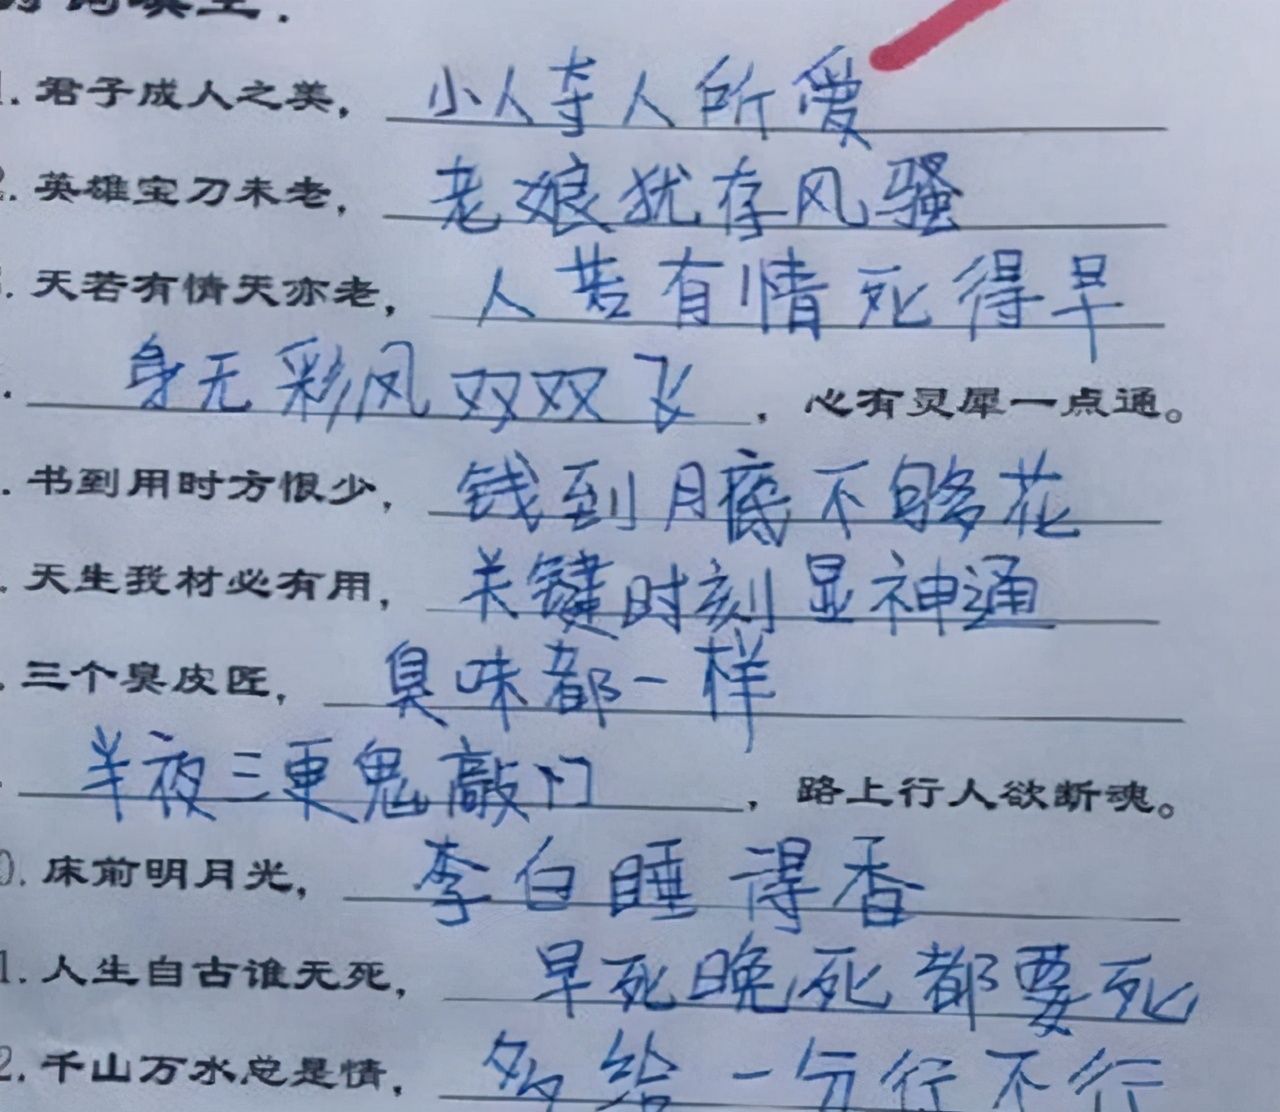 词填空.
1. 君子成人之美， 小人夺人所爱
2. 英雄宝刀未老， 老娘犹存风骚
天若有情天亦老， 人若有情死得早
身无彩凤双双飞 ，心有灵犀一点通。
书到用时方恨少， 钱到月底不够花
天生我材必有用， 关键时刻显神通
三个臭皮匠， 臭味都一样
半夜三更鬼敲门 ，路上行人欲断魂。
0. 床前明月光， 李白睡得香
1. 人生自古谁无死， 早死晚死都要死
2. 千山万水总是情， 多给一分行不行